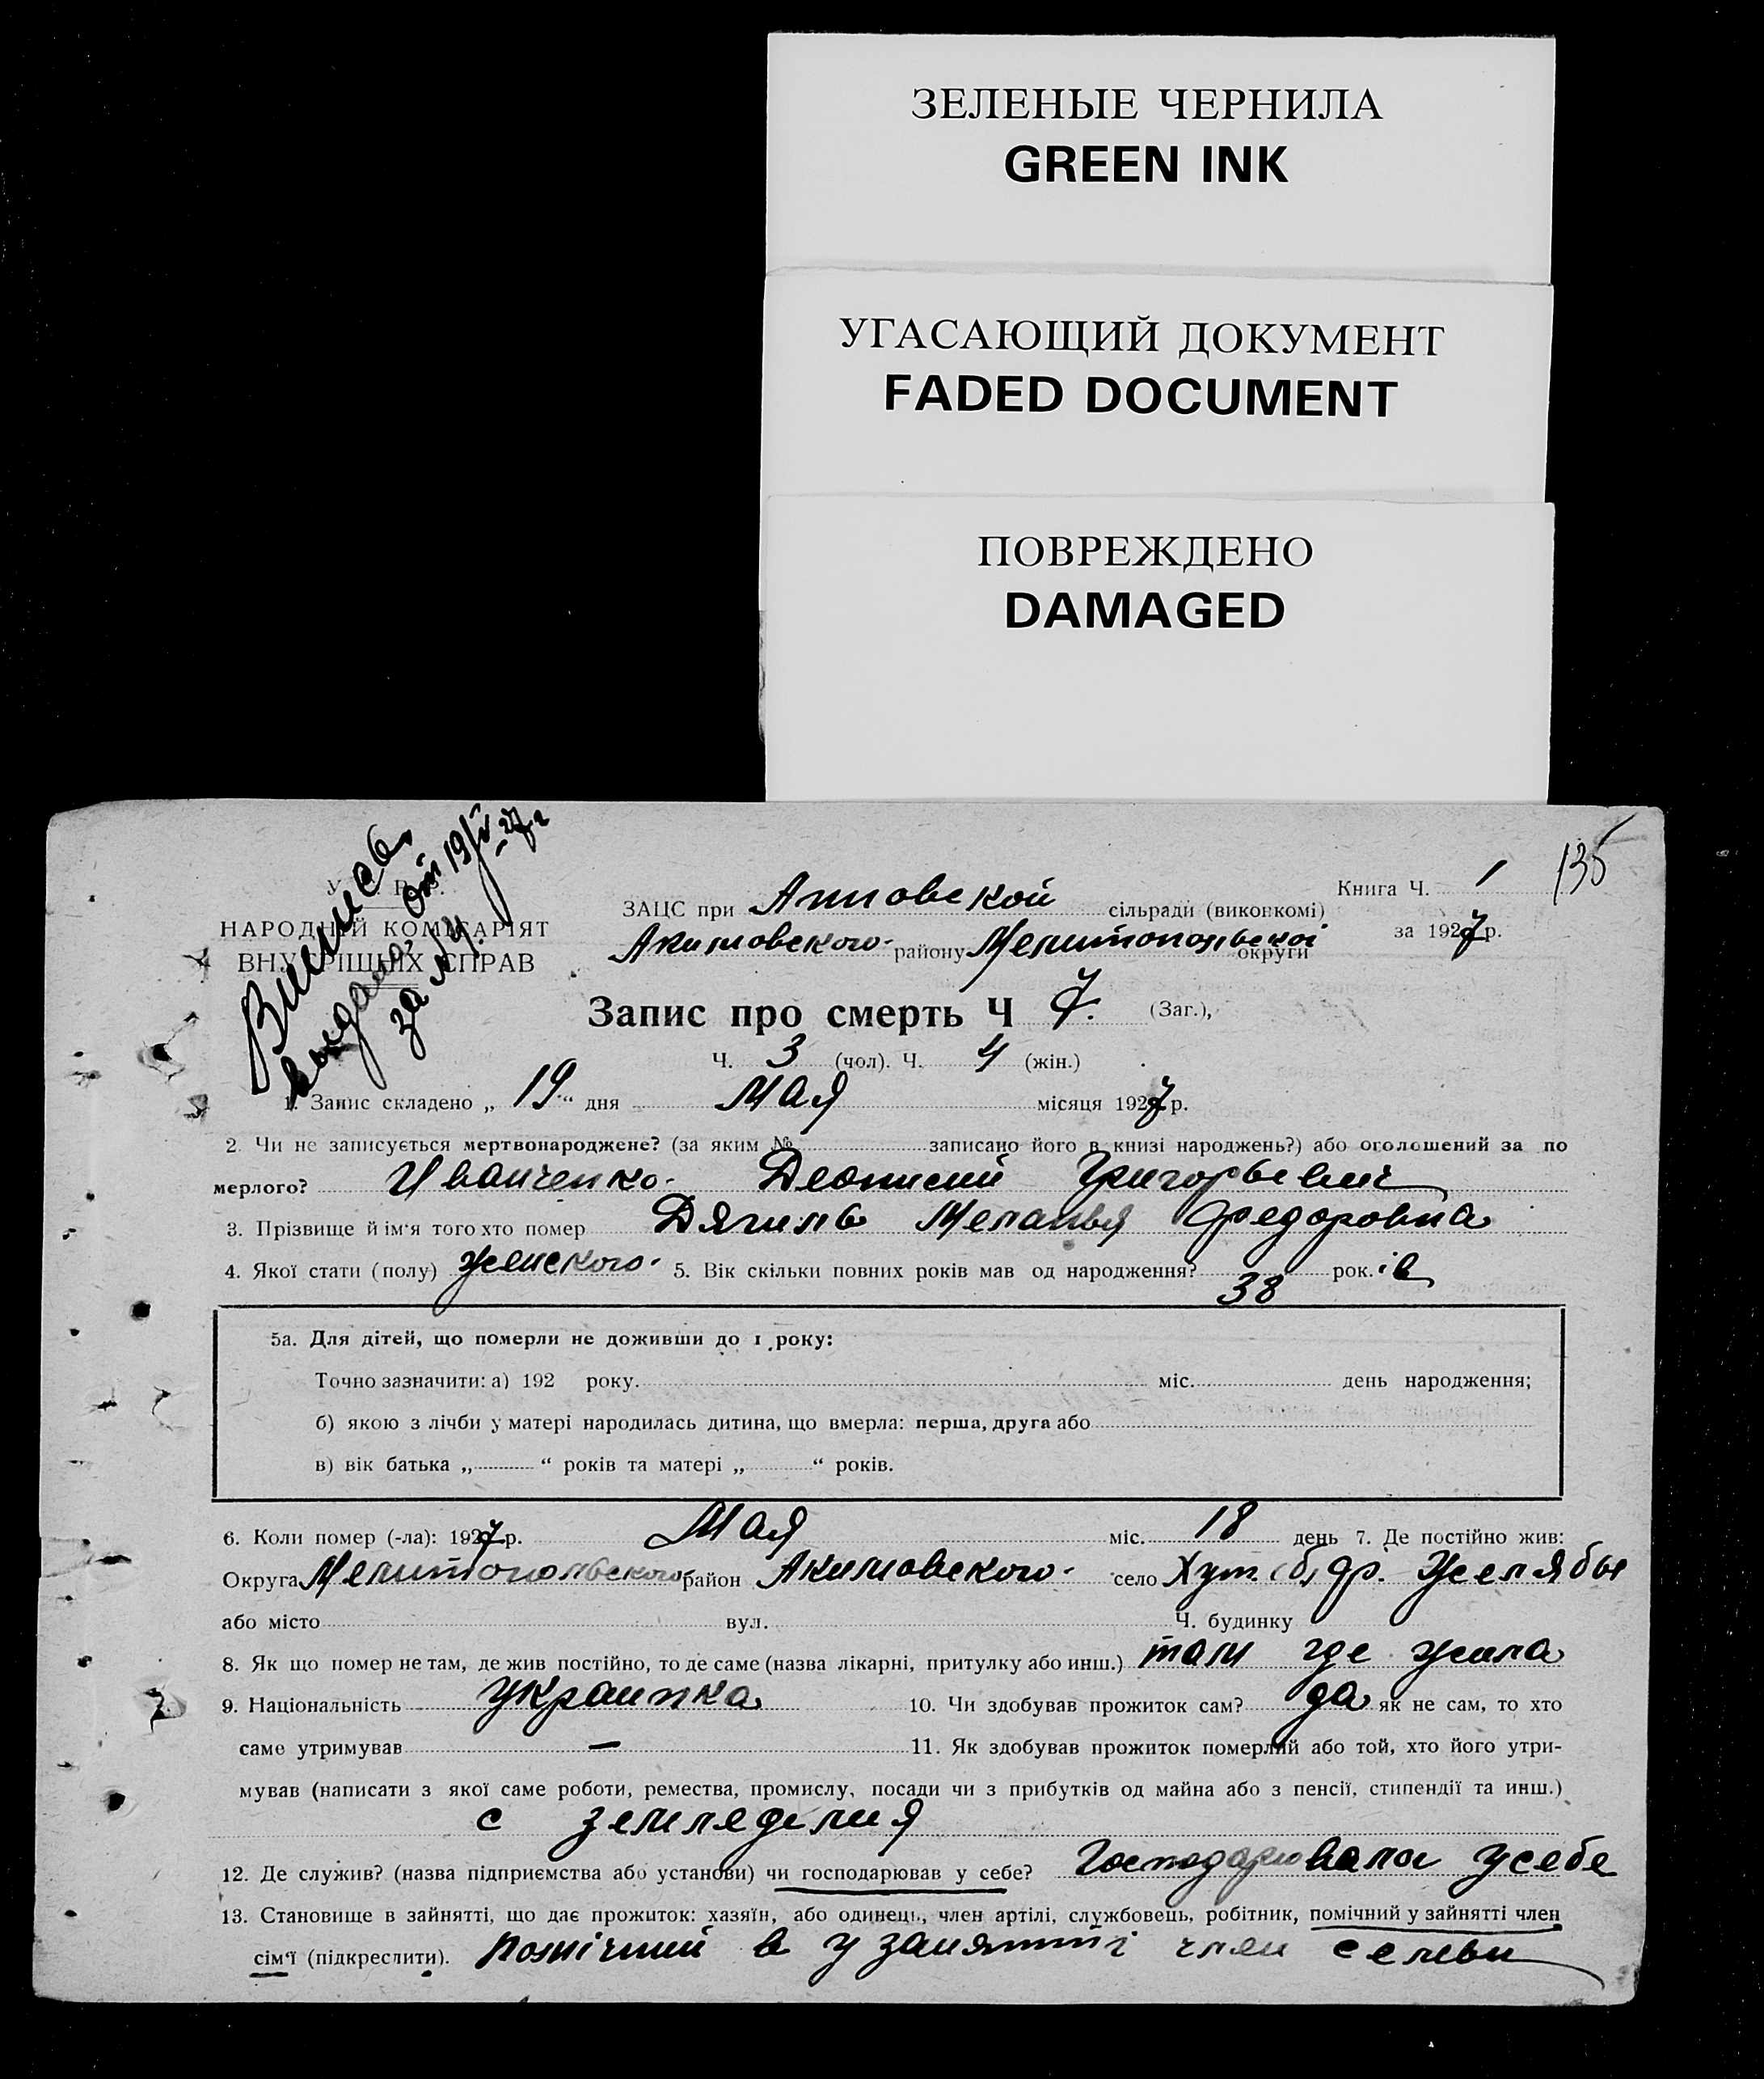 ЗЕЛЕНЫЕ ЧЕРНИЛА
GREEN INK
УГАСАЮЩИЙ ДОКУМЕНТ
FADED DOCUMENT
ПОВРЕЖДЕНО
DAMAGED
135
Випись
выдана
от 19/V-27 г
за №
НАРОДНИЙ КОМІСАРІЯТ
ВНУТРІШНІХ СПРАВ
Книга Ч. 1
за 1927 р.
ЗАЦС при Анновской сільради (виконкомі)
Акимовского району Мелитопольскоі округи
Запис про смерть Ч 7. (Заг.),
Ч. 3 (чол). Ч. 4 (жін.)
1. Запис складено „ 19 “ дня мая місяця 1927 р.
2. Чи не записується мертвонароджене? (за яким № записано його в книзі народжень?) або оголошений за по
мерлого? Иванченко Деонисий Григорьевич
3. Прізвище й ім'я того хто помер Дягиль Меланья Федоровна
4. Якої стати (полу) женского 5. Вік скільки повних років мав од народження? 38 рок. ів
5а. Для дітей, що померли не доживши до 1 року:
Точно зазначити: а) 192 року. міс. день народження;
б) якою з лічби у матері народилась дитина, що вмерла: перша, друга або
в) вік батька „ “ років та матері „ “ років.
6. Коли помер (-ла): 1927 р. Мая міс. 18 день 7. Де постійно жив:
Округа Мелитопольского район Акимовского село Хут. др. Желябы
або місто вул. Ч. будинку
8. Як що помер не там, де жив постійно, то де саме (назва лікарні, притулку або инш.) там где жила
9. Національність украинка 10. Чи здобував прожиток сам? да як не сам, то хто
саме утримував — 11. Як здобував прожиток померлий або той, хто його утри-
мував (написати з якої саме роботи, ремества, промислу, посади чи з прибутків од майна або з пенсії, стипендії та инш.)
с земледелия
12. Де служив? (назва підприємства або установи) чи господарював у себе? Господарювала усебе
13. Становище в зайнятті, що дає прожиток: хазяїн, або одинець, член артілі, службовець, робітник, помічний у зайнятті член
сім'ї (підкреслити). помічний в у занятті член семьи